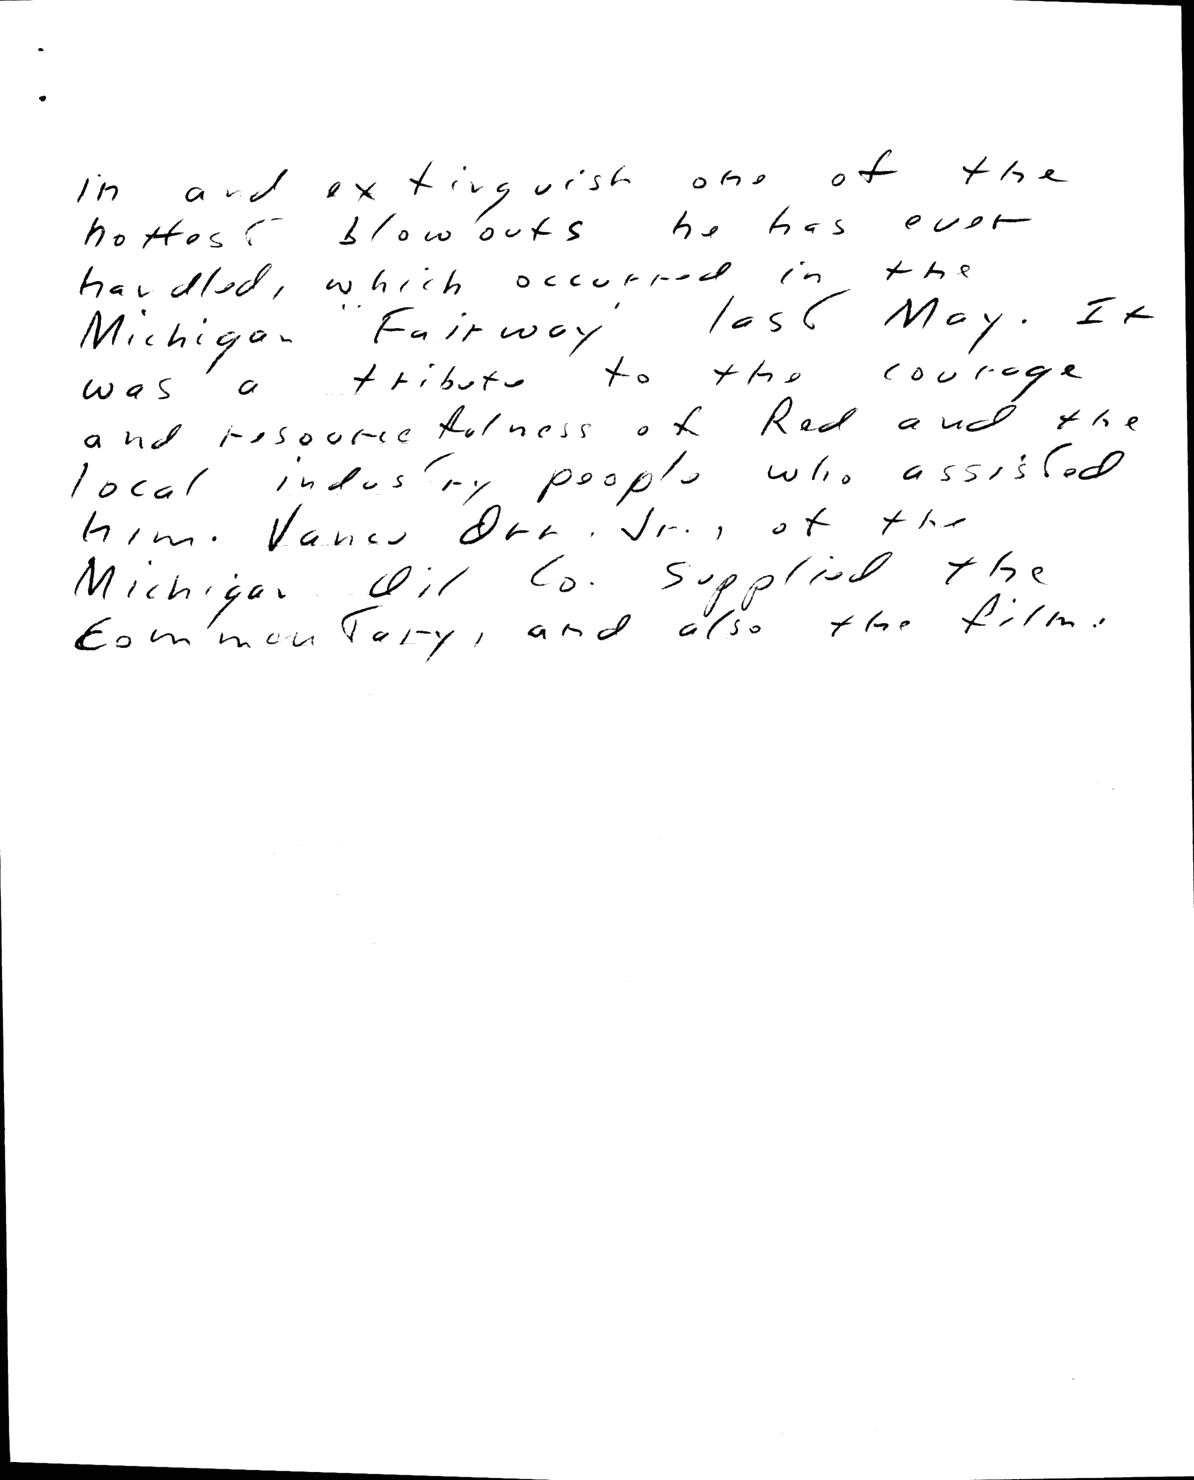 in and extinguish one of the
hottest blowouts he has ever
handled, which occurred in the
Michigan "Fairway" last May. It
was a tribute to the courage
and resourcefulness of Red and the
local industry people who assisted
him. Vance Orr, Jr., of the
Michigan Oil Co. supplied the
Commentary, and also the film.